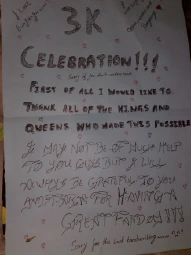 3K
CELEBRATION!!!
FIRST OF ALL I WOULD LIKE TO
THANK ALL OF THE KINGS AND
QUEENS WHO MADE THIS POSSIBLE
I MAY NOT BE OF MUCH HELP
TO YOU GUYS BUT I WILL
ALWAYS BE GRATEFUL TO YOU
FOR HAVING A
GREAT FANDOM!!!
Sorry for the bad handwriting